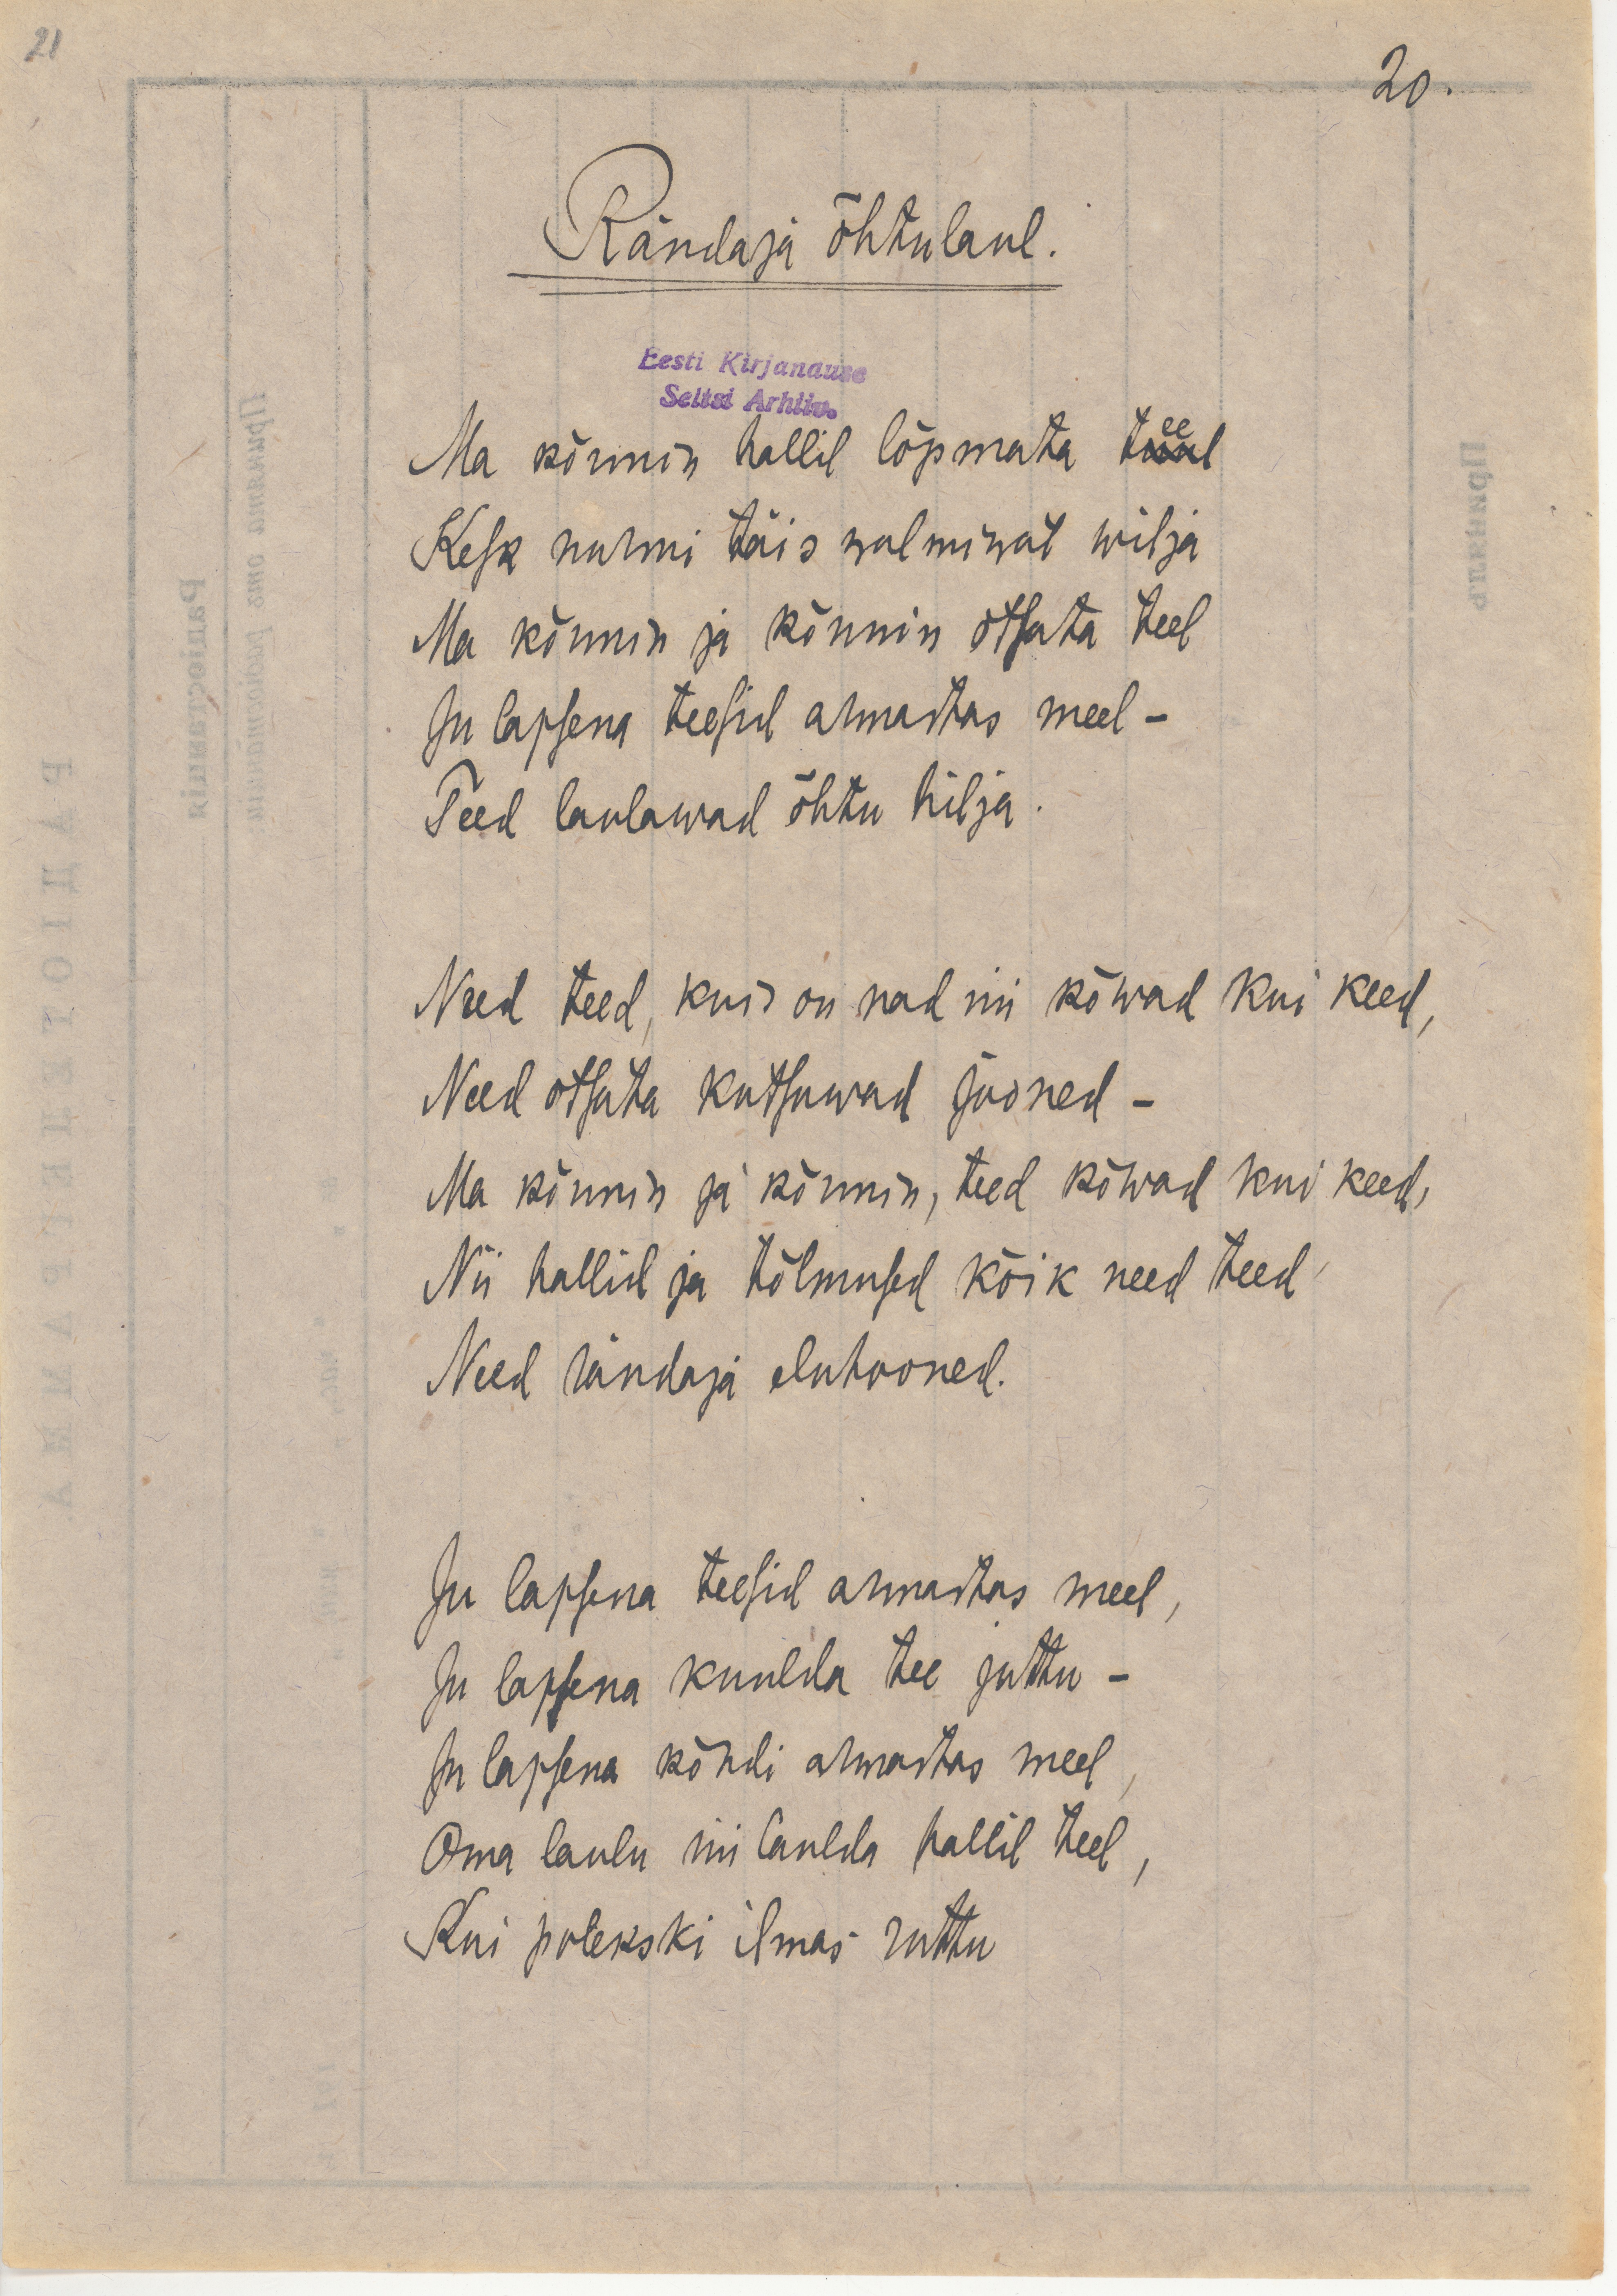 21
20.
Rändaja õhtulaul.
Eesti Kirjanduse
Seltsi Arhiiv.
Ma kõnnin hallil lõpmata teel
Kesk nurmi täis walmiwat wilja
Ma kõnnin ja kõnnin otsata teel
Ju lapsena teesid armastas meel –
Teed laulawad õhtu hilja.
Need teed, kuis on nad nii kõwad kui keed,
Need otsata kutsuwad jooned –
Ma kõnnin ja kõnnin, teed kõwad kui keed,
Nii hallid ja tolmused kõik need teed
Need rändaja eluhooned.
Ju lapsena teesid armastas meel,
Ju lapsena kuulda tee juttu –
Ju lapsena kõndi armastas meel,
Oma laulu nii laulda hallil teel,
Kui poleks ki ilmas ruttu